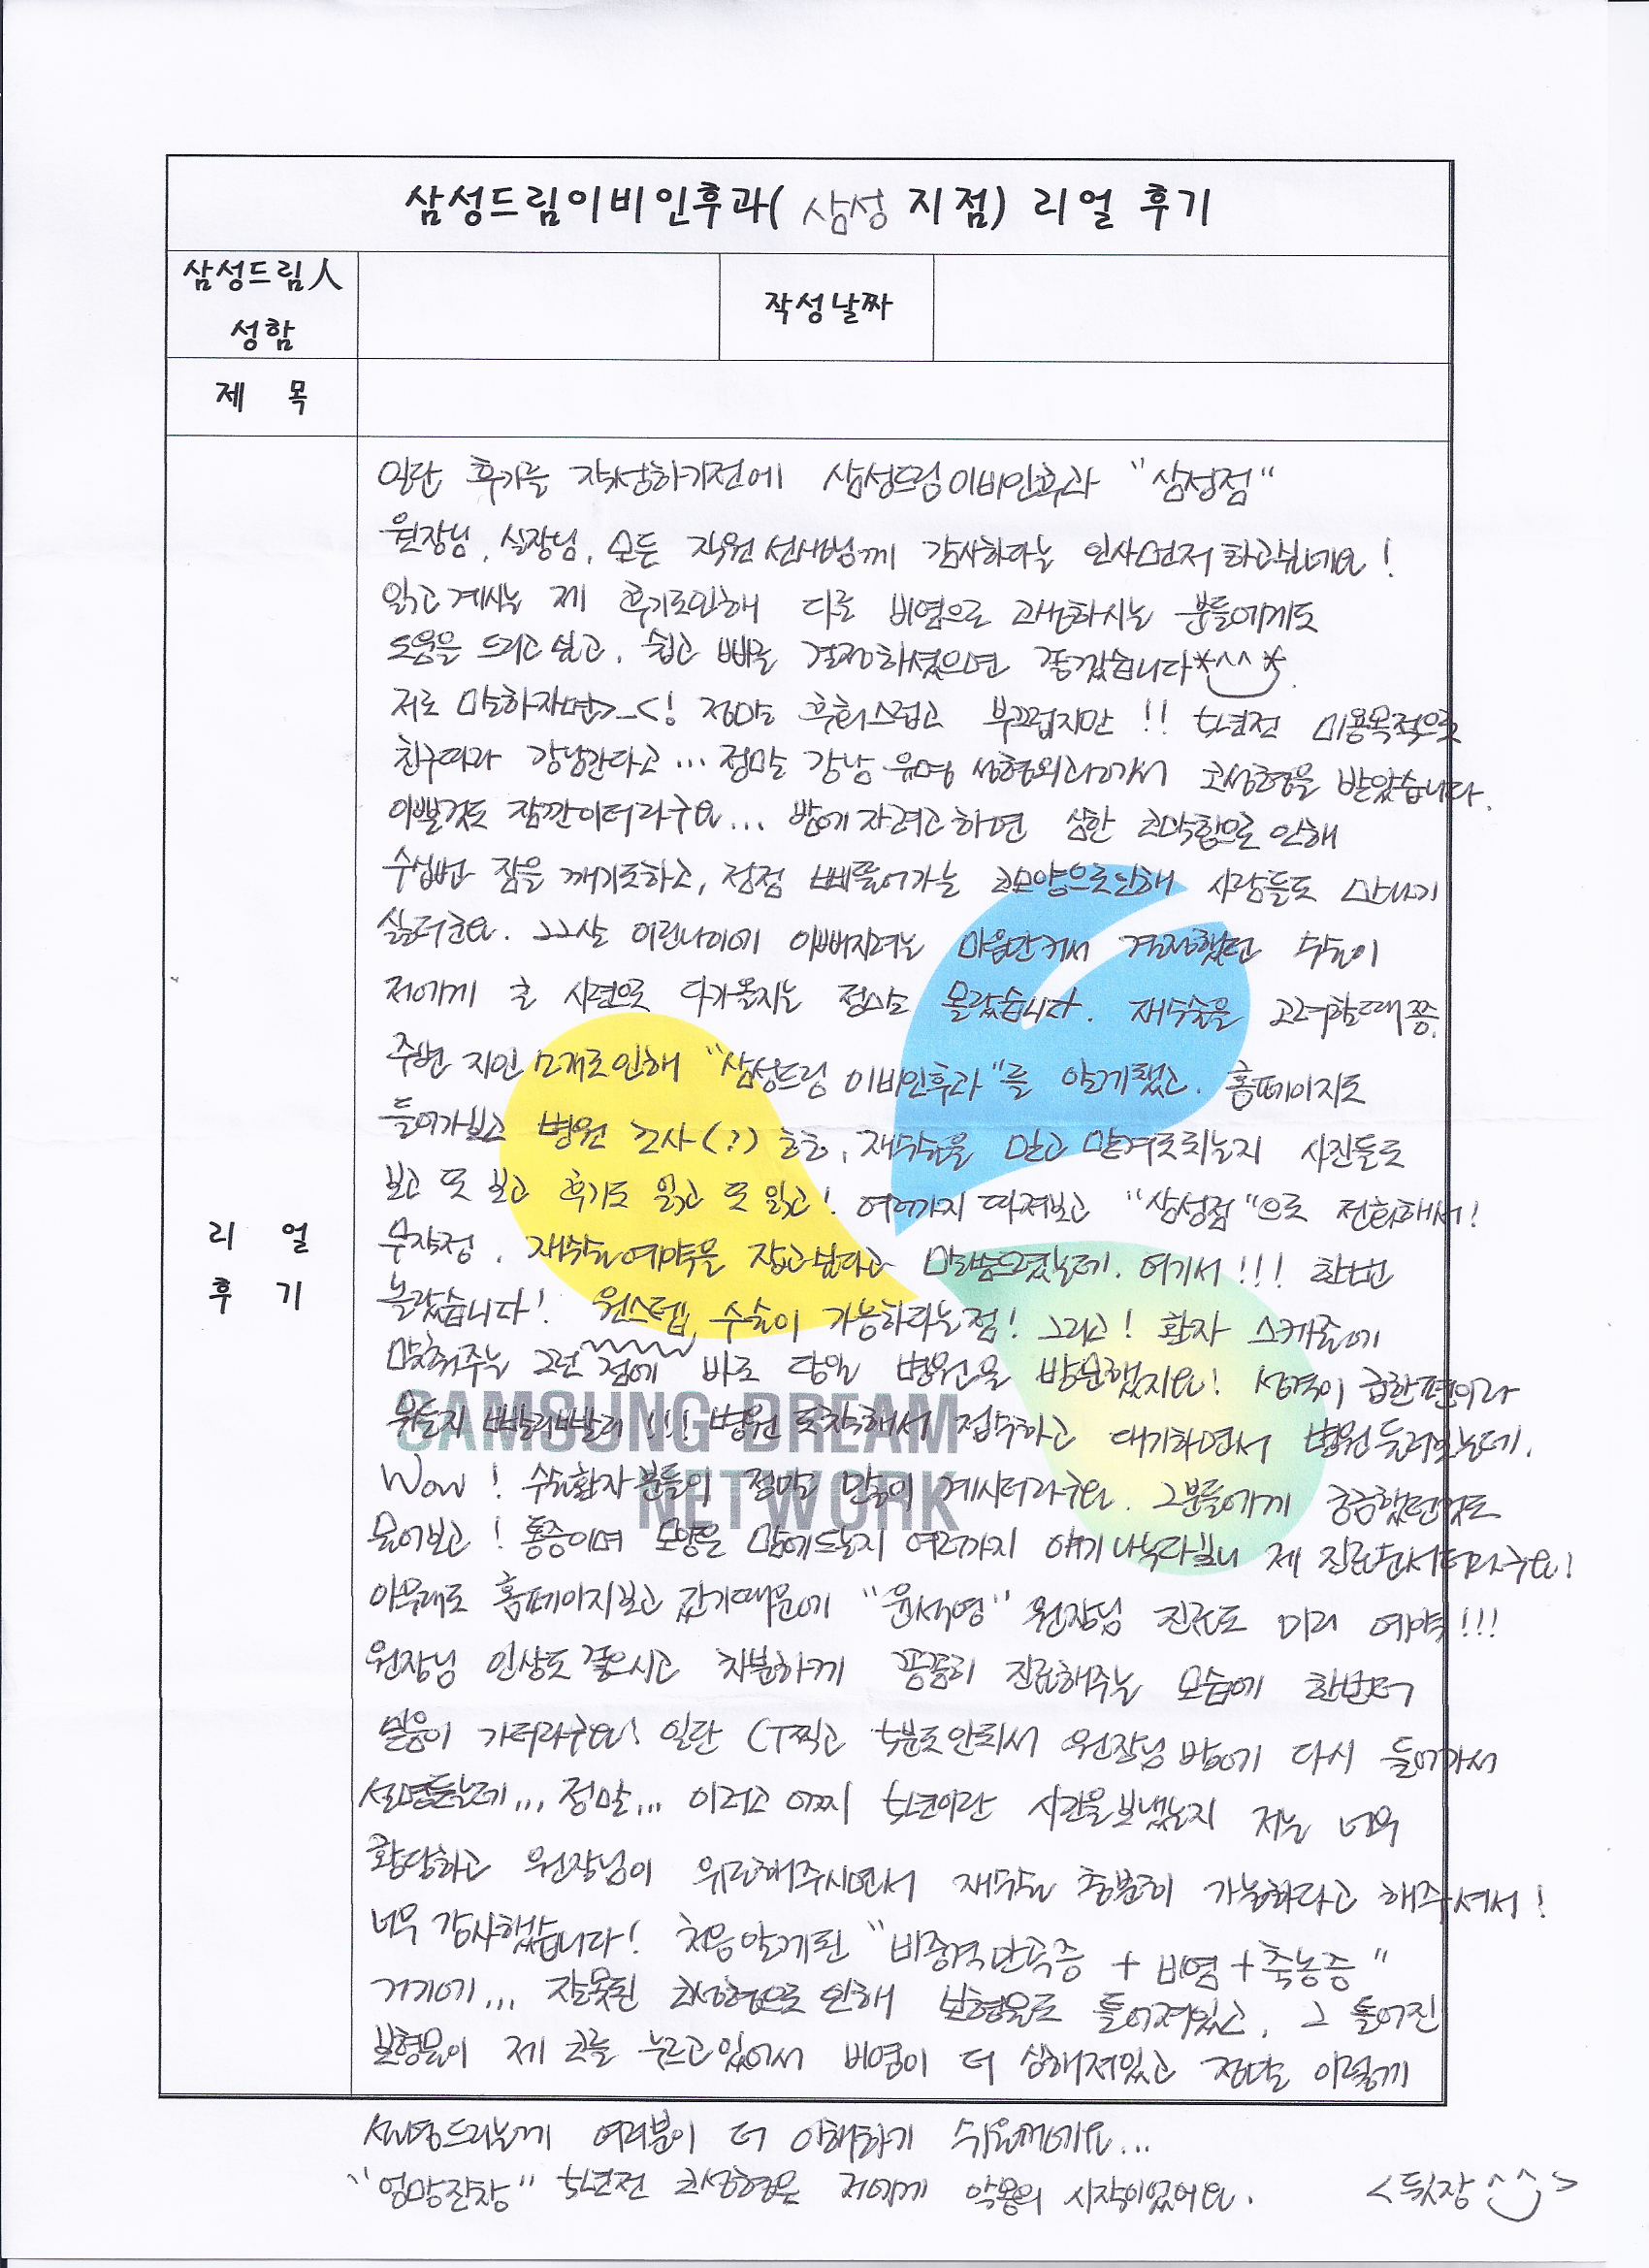 삼성드림이비인후과( 삼성 지점) 리얼 후기
삼성드림人
성함
작성날짜
제 목
리 얼
후 기
일단 후기를 작성하기전에 삼성드림이비인후과 "삼성점"
원장님, 실장님, 모든 직원선생님께 감사하다는 인사먼저 하고싶네요!
읽고계시는 제 후기로인해 다른 비염으로 고생하시는 분들에게도
도움을 드리고 싶고, 쉽고 빠른 결정하셨으면 좋겠습니다*^^*.
저로 말하자면>_<! 정말 후회스럽고 부끄럽지만!! 5년전 미용목적으로
친구따라 강남간다고... 정말 강남 유명 성형외과에서 코성형을 받았습니다.
이쁠것도 잠깐이더라구요... 밤에 자려고하면 심한 코막힘으로 인해
수십번 잠을 깨기도하고, 점점 삐뚤어가는 코모양으로인해 사람들도 만나기
싫더군요. 22살 어린나이에 이뻐지려는 마음만커서 결정했던 수술이
저에게 큰 시련으로 다가올지는 정말로 몰랐습니다. 재수술을 고려할때쯤,
주변 지인 소개로인해 "삼성드림 이비인후과"를 알게됐고, 홈페이지도
들어가보고 병원 조사(?) 흐흐, 재수술을 믿고 맡겨도되는지 사진들도
보고 또 보고 후기도 읽고 또 읽고! 여러가지 따져보고 "삼성점"으로 전화해서!
무작정, 재수술예약을 잡고싶다고 말씀드렸는데, 여기서!!! 한번
놀랐습니다! 원스텝 수술이 가능하다는점! 그리고! 환자 스케줄에
맞춰주는 그런 점에 바로 당일 병원을 방문했지요! 성격이 급한편이라
뭐든지 빨리빨리!!! 병원 도착해서 접수하고 대기하면서 병원둘러보는데,
Wow! 수술환자분들이 정말 많이 계시더라구요. 그분들에게 궁금했던것도
물어보고! 통증이며 모양은 맘에드는지 여러가지 얘기나누다보니 제 진료순서더라구요!
아무래도 홈페이지보고 갔기때문에 "윤석영" 원장님 진료도 미리 예약!!!
원장님 인상도 좋으시고 차분하게 꼼꼼히 진료해주는 모습에 한번더
믿음이 가더라구요! 일단 CT찍고 5분도안되서 원장님 방에 다시 들어가서
설명듣는데... 정말... 이러고 어찌 5년이란 시간을보냈는지 저는 너무
황당하고 원장님이 위로해주시면서 재수술 충분히 가능하다고 해주셔서!
너무 감사했습니다! 처음알게된 "비중격만곡증 + 비염+축농증"
거기에... 잘못된 코성형으로 인해 보형물로 틀어져있고, 그 틀어진
보형물이 제 코를 누르고있어서 비염이 더 심해져있고 정말 이렇게
설명드리는게 여러분이 더 이해하기 쉬울꺼에요...
"엉망진창" 5년전 코성형은 저에게 악몽의 시작이었어요. <뒷장^^>
SAMSUNG DREAM
NETWORK